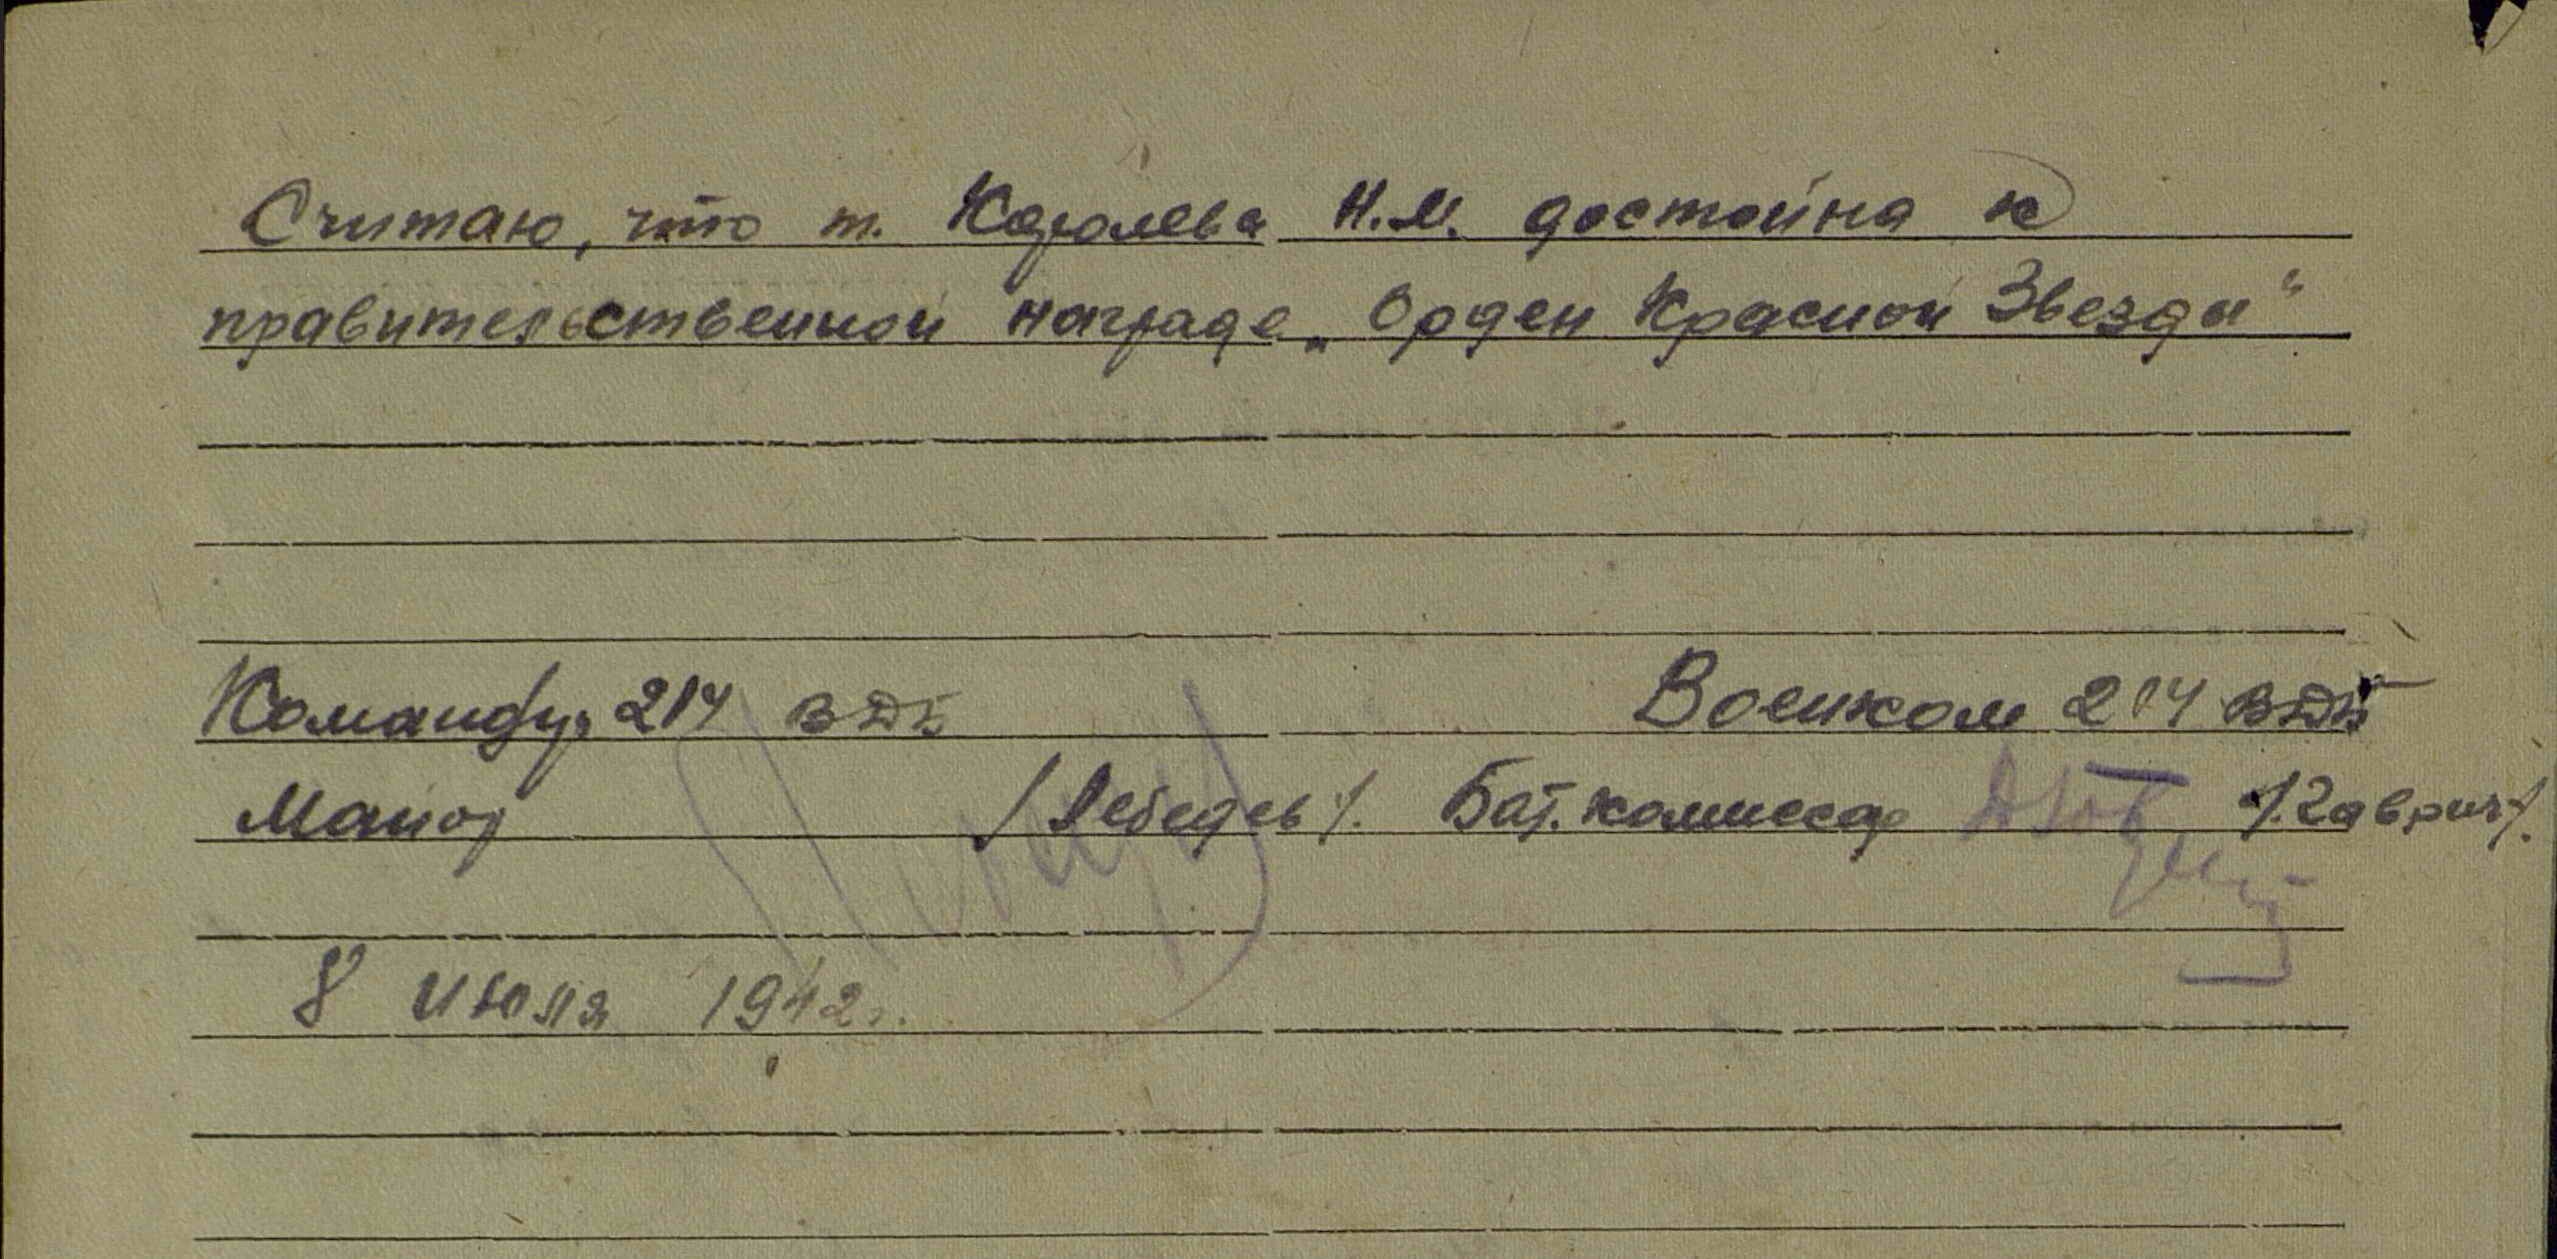 Считаю, что т. Королева Н.М. достойна к
правительственной награде „Орден Красной Звезды“
Командир 214 ВДБ Военком 214 ВДБ
Майор /Лебедев/. Бат. комиссар /Гаврич/.
8 июля 1942г.